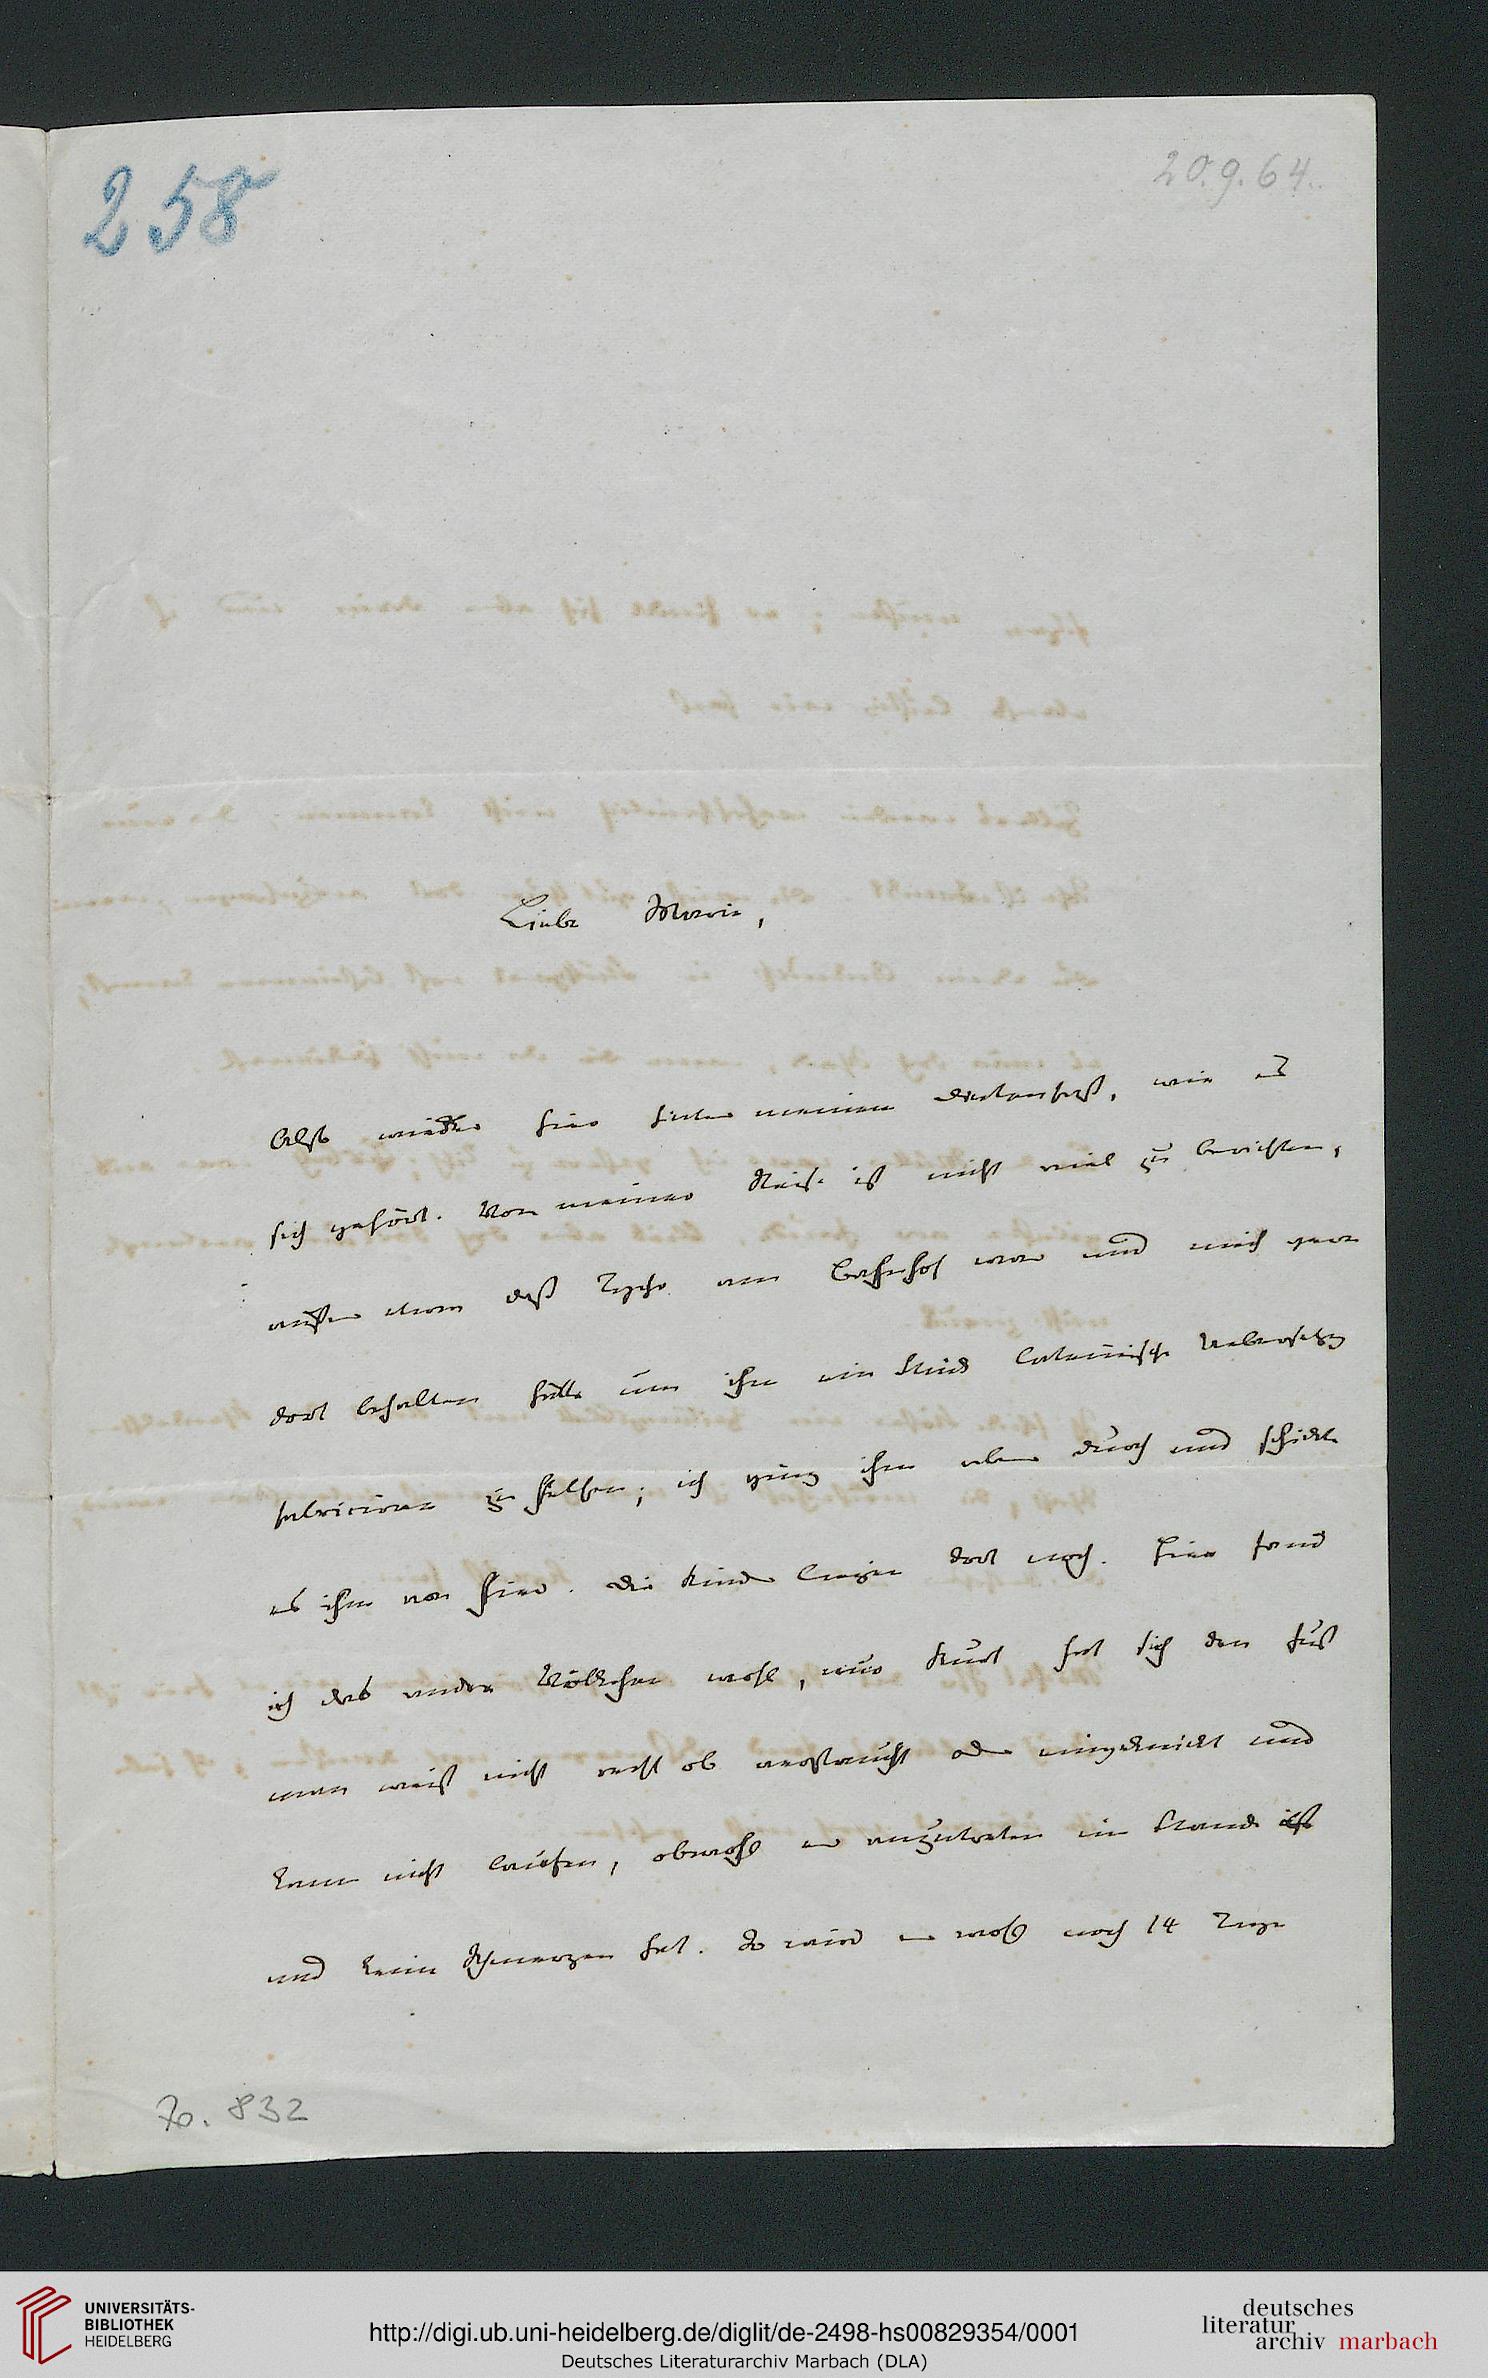 258
20.9.64.
Liebe Marie,
Also wieder hier hinter meinem Dintenfaß, wie es
sich gehört. Von meiner Reise ist nicht viel zu berichten,
außer etwa daß Tycho am Bahnhof war und mich gern
dort behalten hätte um ihm ein Stück lateinische Uebersetzg
fabriciren zu helfen; ich ging ihm aber durch und schickte
es ihm von hier. Die Kinder liegen dort noch. Hier fand
ich das andre Völkchen wohl, nur Kurt hat sich den Fuß
man weiß nicht recht ob verstaucht oder eingeknickt und
kann nicht laufen, obwohl er anzutreten im Stande ist
und keine Schmerzen hat. So wird er wohl noch 14 Tage
No. 832
UNIVERSITÄTS-
BIBLIOTHEK
HEIDELBERG
http://digi.ub.uni-heidelberg.de/diglit/de-2498-hs00829354/0001
Deutsches Literaturarchiv Marbach (DLA)
deutsches
literatur
archiv marbach